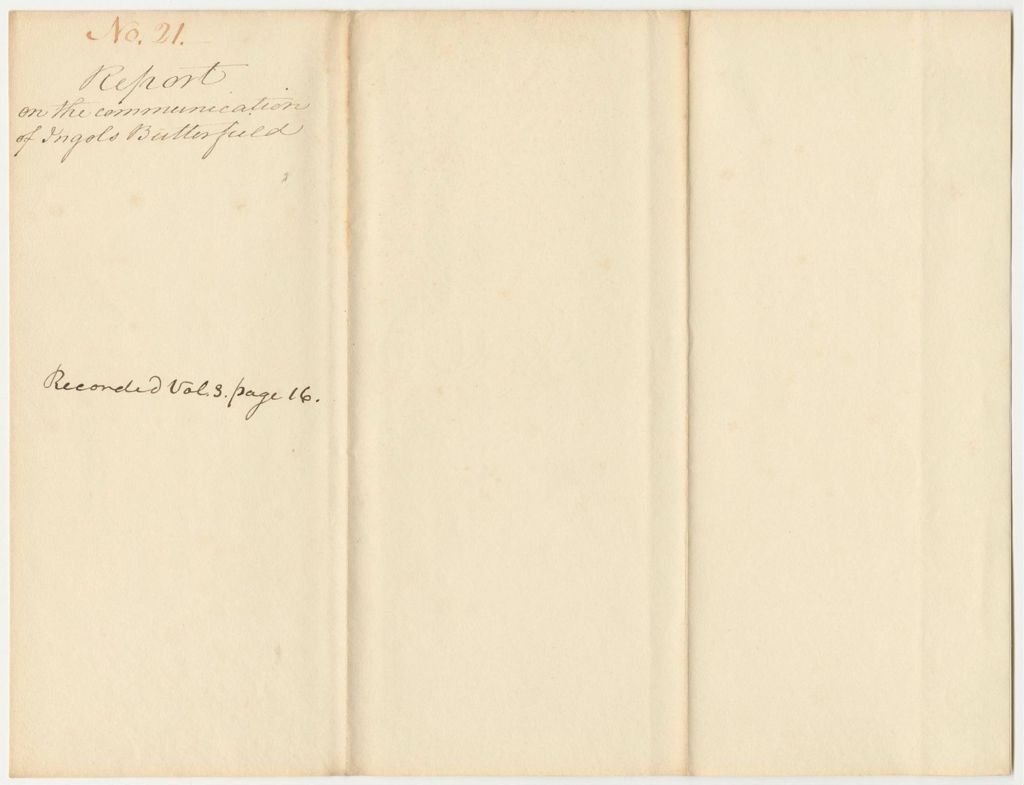 No. 21.
Report
on the communication
of Ingols Butterfield
Recorded Vol. 3. page 16.